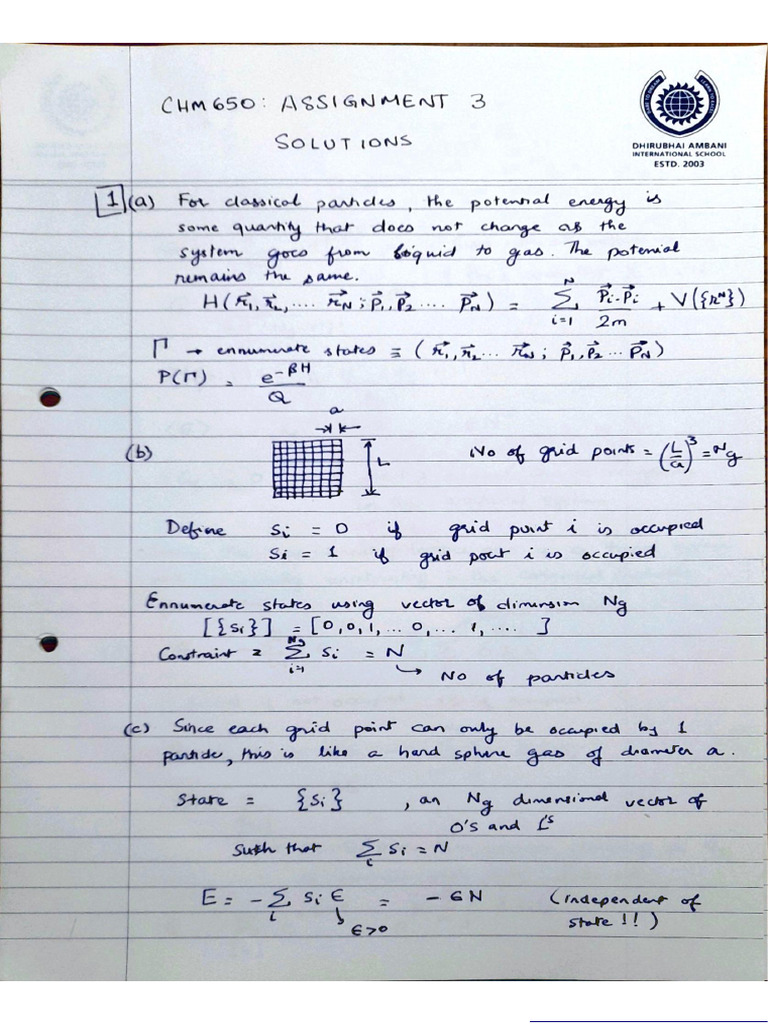 CHM650: ASSIGNMENT 3
SOLUTIONS
DHIRUBHAI AMBANI
INTERNATIONAL SCHOOL
ESTD. 2003
1 (a) For classical particles, the potential energy is
some quantity that does not change as the
system goes from liquid to gas. The potenial
remains the same.
H(r⃗₁, r⃗₂, .... r⃗N ; p⃗₁, p⃗₂ .... p⃗N) = Σᵢ₌₁ᴺ p⃗ᵢ·p⃗ᵢ / 2m + V({rᴺ})
Γ → ennumerate states ≡ (r⃗₁, r⃗₂ ... r⃗N ; p⃗₁, p⃗₂ ... p⃗N)
P(Γ) = e^(-βH) / Q
a
(b) L No of grid points = (L/a)³ = Ng
Define Si = 0 if grid point i is occupied
Si = 1 if grid pont i is occupied
Ennumerate states using vector of dimension Ng
[{Si}] = [0, 0, 1, ... 0, ... 1, .... ]
Constraint = Σᵢ₌₁^Ng Si = N
→ No of particles
(c) Since each grid point can only be occupied by 1
particle, this is like a hard sphere gas of diameter a.
State = {Si} , an Ng dimensional vector of
0's and 1's
Such that Σᵢ Si = N
E = - Σᵢ Si ϵ = - ϵN (independent of
ϵ>0 state !!)